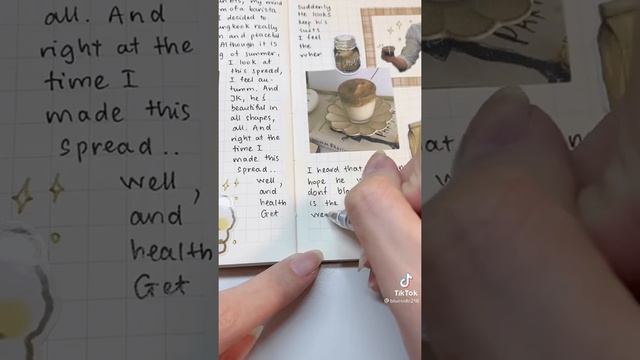 all. And
right at the
time I
made this
spread..
well,
and
health
Get
my mind
of a barista
decided to
really
and peaceful
Although it is
of summer.
I look at
this spread,
I feel au-
tumn. And
JK, he's
beautiful in
all shapes,
all. And
right at the
time I
made this
spread...
well,
and
health
Get
Suddenly
He looks
keep his
suits
I feel
the
I heard that
hope he
dont
is the
TikTok